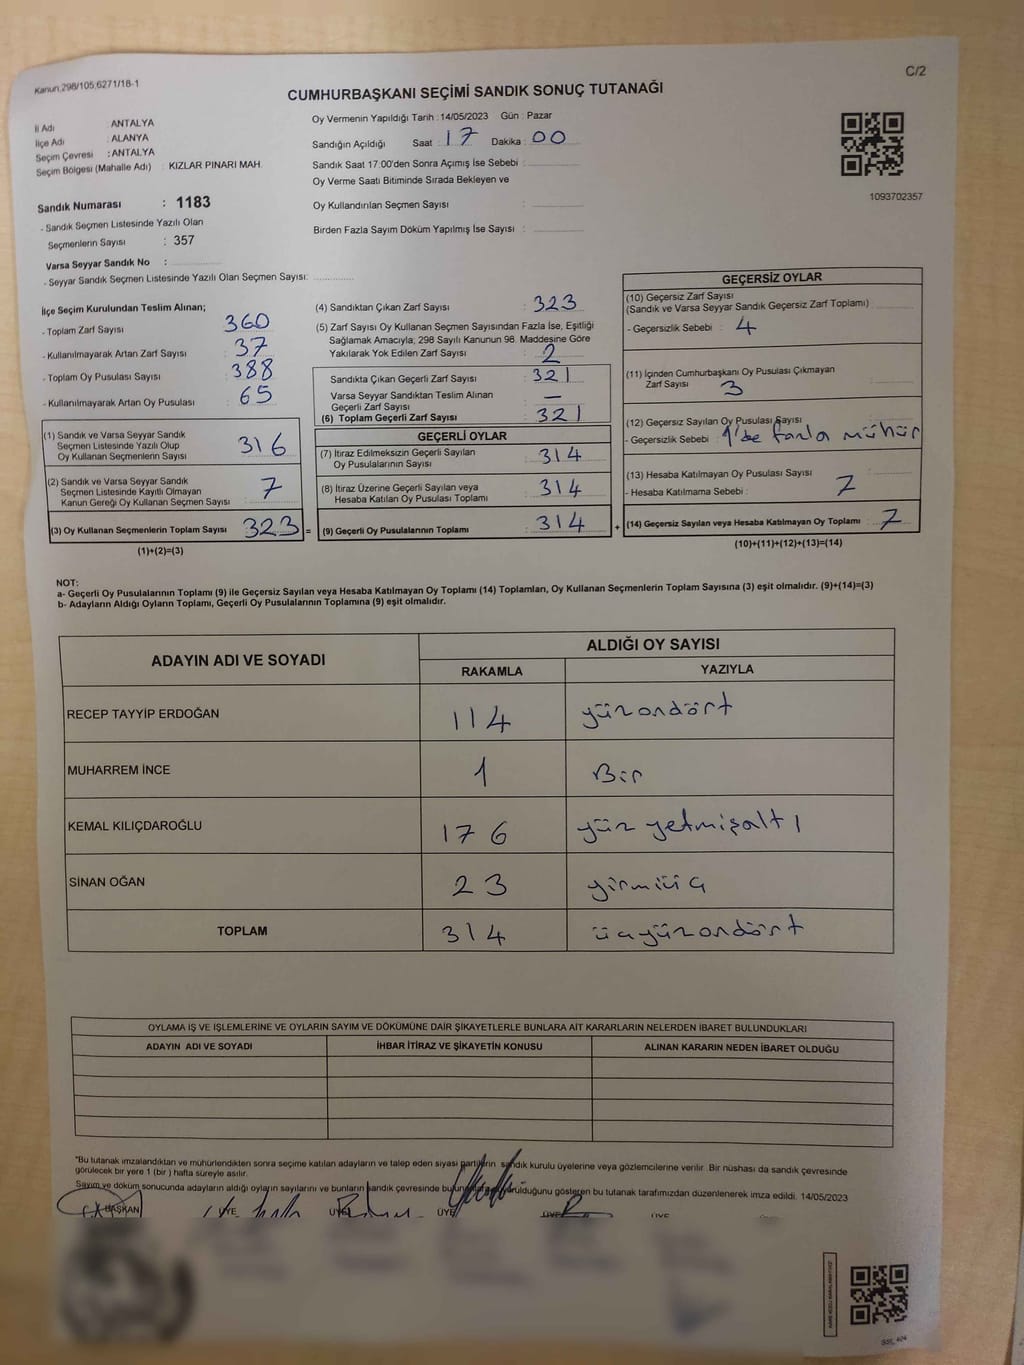 Kanun,298/105,6271/18-1
C/2
CUMHURBAŞKANI SEÇİMİ SANDIK SONUÇ TUTANAĞI
İl Adı : ANTALYA
İlçe Adı : ALANYA
Seçim Çevresi : ANTALYA
Seçim Bölgesi (Mahalle Adı) : KIZLAR PINARI MAH.
Sandık Numarası : 1183
- Sandık Seçmen Listesinde Yazılı Olan
Seçmenlerin Sayısı : 357
Varsa Seyyar Sandık No :
- Seyyar Sandık Seçmen Listesinde Yazılı Olan Seçmen Sayısı:
Oy Vermenin Yapıldığı Tarih : 14/05/2023 Gün : Pazar
Sandığın Açıldığı Saat : 17 Dakika : 00
Sandık Saat 17:00'den Sonra Açımış İse Sebebi :
Oy Verme Saati Bitiminde Sırada Bekleyen ve
Oy Kullandırılan Seçmen Sayısı :
Birden Fazla Sayım Döküm Yapılmış İse Sayısı :
1093702357
İlçe Seçim Kurulundan Teslim Alınan;
- Toplam Zarf Sayısı : 360
- Kullanılmayarak Artan Zarf Sayısı : 37
- Toplam Oy Pusulası Sayısı : 388
- Kullanılmayarak Artan Oy Pusulası : 65
(1) Sandık ve Varsa Seyyar Sandık
Seçmen Listesinde Yazılı Olup
Oy Kullanan Seçmenlerin Sayısı 316
(2) Sandık ve Varsa Seyyar Sandık
Seçmen Listesinde Kayıtlı Olmayan
Kanun Gereği Oy Kullanan Seçmen Sayısı : 7
(3) Oy Kullanan Seçmenlerin Toplam Sayısı 323 =
(1)+(2)=(3)
(4) Sandıktan Çıkan Zarf Sayısı : 323
(5) Zarf Sayısı Oy Kullanan Seçmen Sayısından Fazla İse, Eşitliği
Sağlamak Amacıyla, 298 Sayılı Kanunun 98. Maddesine Göre
Yakılarak Yok Edilen Zarf Sayısı : 2
Sandıkta Çıkan Geçerli Zarf Sayısı : 321
Varsa Seyyar Sandıktan Teslim Alınan
Geçerli Zarf Sayısı : —
(6) Toplam Geçerli Zarf Sayısı : 321
GEÇERLİ OYLAR
(7) İtiraz Edilmeksizin Geçerli Sayılan
Oy Pusulalarının Sayısı : 314
(8) İtiraz Üzerine Geçerli Sayılan veya
Hesaba Katılan Oy Pusulası Toplamı : 314
(9) Geçerli Oy Pusulalarının Toplamı : 314 +
GEÇERSİZ OYLAR
(10) Geçersiz Zarf Sayısı
(Sandık ve Varsa Seyyar Sandık Geçersiz Zarf Toplamı) :
- Geçersizlik Sebebi : 4
(11) İçinden Cumhurbaşkanı Oy Pusulası Çıkmayan
Zarf Sayısı 3 :
(12) Geçersiz Sayılan Oy Pusulası Sayısı
- Geçersizlik Sebebi : 1'de fazla mühür
(13) Hesaba Katılmayan Oy Pusulası Sayısı :
- Hesaba Katılmama Sebebi : 7
(14) Geçersiz Sayılan veya Hesaba Katılmayan Oy Toplamı : 7
(10)+(11)+(12)+(13)=(14)
NOT:
a- Geçerli Oy Pusulalarının Toplamı (9) ile Geçersiz Sayılan veya Hesaba Katılmayan Oy Toplamı (14) Toplamları, Oy Kullanan Seçmenlerin Toplam Sayısına (3) eşit olmalıdır. (9)+(14)=(3)
b- Adayların Aldığı Oyların Toplamı, Geçerli Oy Pusulalarının Toplamına (9) eşit olmalıdır.
ADAYIN ADI VE SOYADI
ALDIĞI OY SAYISI
RAKAMLA YAZIYLA
RECEP TAYYİP ERDOĞAN 114 yüzondört
MUHARREM İNCE 1 Bir
KEMAL KILIÇDAROĞLU 176 yüz yetmişaltı
SİNAN OĞAN 23 yirmiüç
TOPLAM 314 üçyüzondört
OYLAMA İŞ VE İŞLEMLERİNE VE OYLARIN SAYIM VE DÖKÜMÜNE DAİR ŞİKAYETLERLE BUNLARA AİT KARARLARIN NELERDEN İBARET BULUNDUKLARI
ADAYIN ADI VE SOYADI İHBAR İTİRAZ VE ŞİKAYETİN KONUSU ALINAN KARARIN NEDEN İBARET OLDUĞU
"Bu tutanak imzalandıktan ve mühürlendikten sonra seçime katılan adayların ve talep eden siyasi partilerin sandık kurulu üyelerine veya gözlemcilerine verilir. Bir nüshası da sandık çevresinde
görülecek bir yere 1 (bir ) hafta süreyle asılır.
Sayım ve döküm sonucunda adayların aldığı oyların sayılarını ve bunların sandık çevresinde gösteren bu tutanak tarafımızdan düzenlenerek imza edildi. 14/05/2023
BAŞKAN ÜYE ÜYE ÜYE ÜYE ÜYE